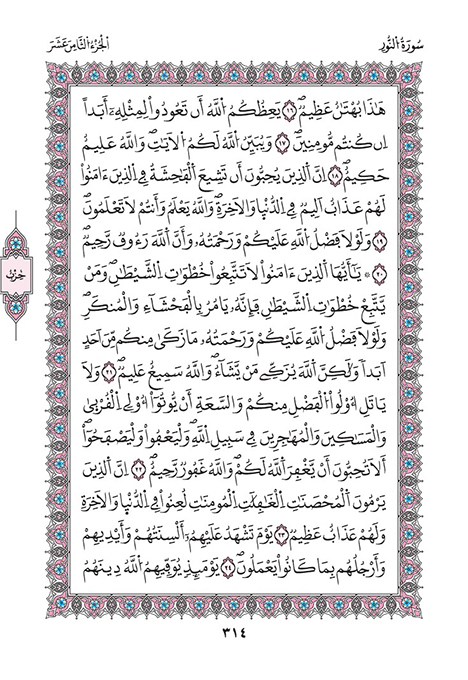 سُورَةُ النُّورِ
الْجُزْءُ الثَّامِنَ عَشَرَ
هَٰذَا بُهْتَٰنٌ عَظِيمٌ ١٦ يَعِظُكُمُ اللَّهُ أَن تَعُودُواْ لِمِثْلِهِۦ أَبَداً
اِن كُنتُم مُّومِنِينَ ١٧ وَيُبَيِّنُ اللَّهُ لَكُمُ الْأَيَٰتِ وَاللَّهُ عَلِيمٌ
حَكِيمٌ ١٨ اِنَّ الَّذِينَ يُحِبُّونَ أَن تَشِيعَ الْفَٰحِشَةُ فِے الَّذِينَ ءَامَنُواْ
لَهُمْ عَذَابٌ اَلِيمٌ فِے الدُّنْيَا وَالَاخِرَةِ وَاللَّهُ يَعْلَمُ وَأَنتُمْ لَا تَعْلَمُونَ
١٩ وَلَوْلَا فَضْلُ اللَّهِ عَلَيْكُمْ وَرَحْمَتُهُۥ وَأَنَّ اللَّهَ رَءُوفٌ رَّحِيمٌ
٢٠ * يَٰأَيُّهَا الَّذِينَ ءَامَنُواْ لَا تَتَّبِعُواْ خُطْوَٰتِ الشَّيْطَٰنِ وَمَنْ
يَّتَّبِعْ خُطْوَٰتِ الشَّيْطَٰنِ فَإِنَّهُۥ يَامُرُ بِالْفَحْشَآءِ وَالْمُنكَرِ
وَلَوْلَا فَضْلُ اللَّهِ عَلَيْكُمْ وَرَحْمَتُهُۥ مَا زَكَىٰ مِنكُم مِّنَ اَحَدٍ
اَبَداً وَلَٰكِنَّ اللَّهَ يُزَكِّے مَنْ يَّشَآءُ وَاللَّهُ سَمِيعٌ عَلِيمٌ ٢١ وَلَا
يَاتَلِ أُوْلُواْ الْفَضْلِ مِنكُمْ وَالسَّعَةِ أَنْ يُّوتُواْ أُوْلِے الْقُرْبَىٰ
وَالْمَسَٰكِينَ وَالْمُهَٰجِرِينَ فِے سَبِيلِ اللَّهِ وَلْيَعْفُواْ وَلْيَصْفَحُواْ
أَلَا تُحِبُّونَ أَنْ يَّغْفِرَ اللَّهُ لَكُمْ وَاللَّهُ غَفُورٌ رَّحِيمٌ ٢٢ اِنَّ الَّذِينَ
يَرْمُونَ الْمُحْصَنَٰتِ الْغَٰفِلَٰتِ الْمُومِنَٰتِ لُعِنُواْ فِے الدُّنْيَا وَالَاخِرَةِ
وَلَهُمْ عَذَابٌ عَظِيمٌ ٢٣ يَوْمَ تَشْهَدُ عَلَيْهِمُۥ أَلْسِنَتُهُمْ وَأَيْدِيهِمْ
وَأَرْجُلُهُم بِمَا كَانُواْ يَعْمَلُونَ ٢٤ يَوْمَئِذٍ يُوَفِّيهِمُ اللَّهُ دِينَهُمُ
حِزْب
٣١٤